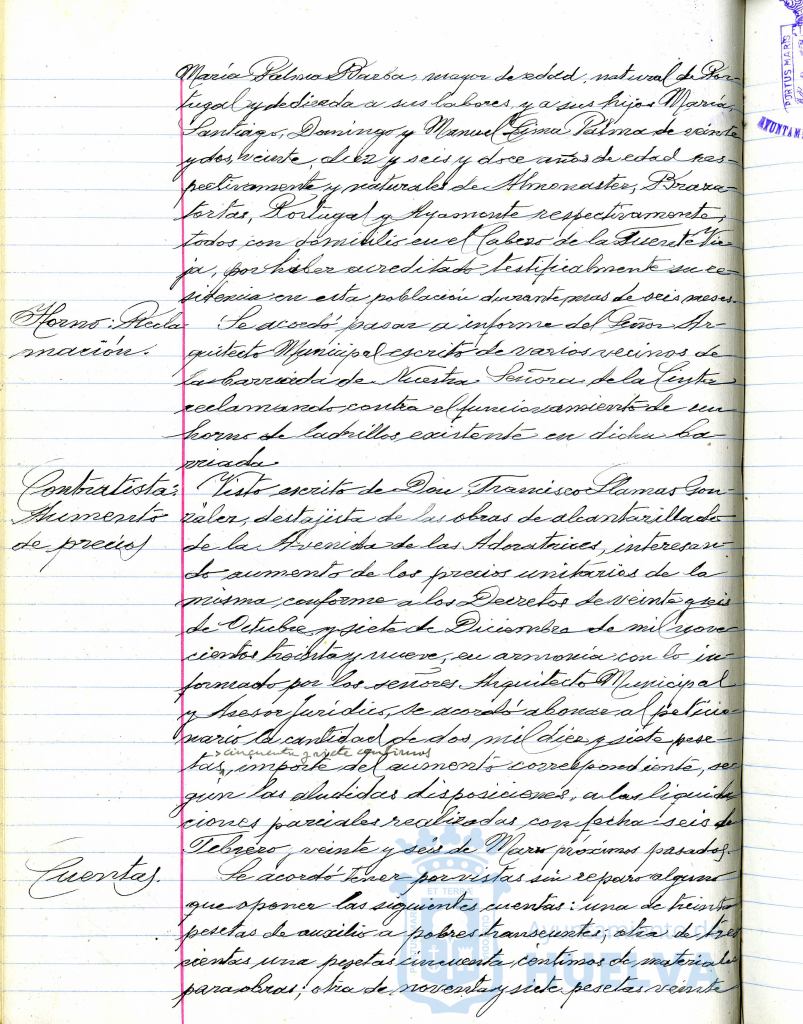 María Palma Barba, mayor de edad, natural de Por-
tugal y dedicada a sus labores, y a sus hijos María,
Santiago, Domingo y Manuel Lima Palma de veinte
y dos, veinte, diez y seis y doce años de edad res-
pectivamente y naturales de Almonaster,
Portugal y Ayamonte respectivamente,
todos con domicilio en el Cabezo de la Fuente Vie-
ja, por haber acreditado testificalmente su re-
sidencia en esta población durante mas de seis meses.
Horno: Recla-
mación.
Se acordó pasar a informe del Señor Ar-
quitecto Municipal escrito de varios vecinos de
la barriada de Nuestra Señora de la Cinta
reclamando contra el funcionamiento de un
horno de ladrillos existente en dicha ba-
rriada.
Contratista:
Aumento
de precios
Visto escrito de Don Francisco Llamas Gon-
zález, destajista de las obras de alcantarillado
de la Avenida de las Adoratrices, interesan-
do aumento de los precios unitarios de la
misma, conforme a los Decretos de veinte y seis
de Octubre y siete de Diciembre de mil nove-
cientos treinta y nueve, en armonía con lo in-
formado por los señores Arquitecto Municipal
y Asesor Jurídico, se acordó abonar al peticio-
nario la cantidad de dos mil diez y siete pese-
cincuenta y siete centimos
tas, importe del aumento correspondiente, se-
gún las aludidas disposiciones, a las liquida-
ciones parciales realizadas con fecha seis de
Febrero, veinte y seis de Marzo próximos pasados.
Cuentas.
Se acordó tener por vistas sin reparo alguno
que oponer las siguientes cuentas: una de treinta
pesetas de auxilio a pobres transeuntes; otra de tres
cientas una pesetas cincuenta centimos de materiales
para obras; otra de noventa y siete pesetas veinte
PORTUS MARIS
AYUNTAM
ET TERRAE
Ayuntamiento de
HUELVA